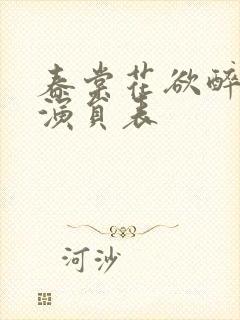 春棠花欲醉
演员表
河沙